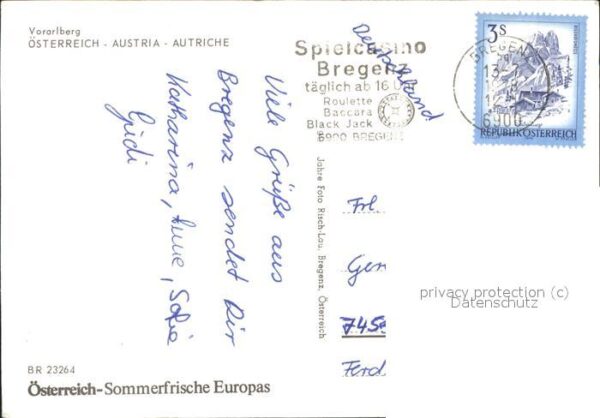 Vorarlberg
ÖSTERREICH - AUSTRIA - AUTRICHE
Viele Grüße aus
Bregenz sendet Dir
Katharina, Anne, Sofie
Gidi
BR 23264
Österreich-Sommerfrische Europas
Spielcasino
Bregenz
täglich ab 16 U
Roulette
Baccara
Black Jack
6900 BREGENZ
Deutschland
BREGENZ
6900
3S
REPUBLIK ÖSTERREICH
Jahre Foto Risch-Lau, Bregenz, Österreich
Frl
Ger
745
Ferd
privacy protection (c)
Datenschutz